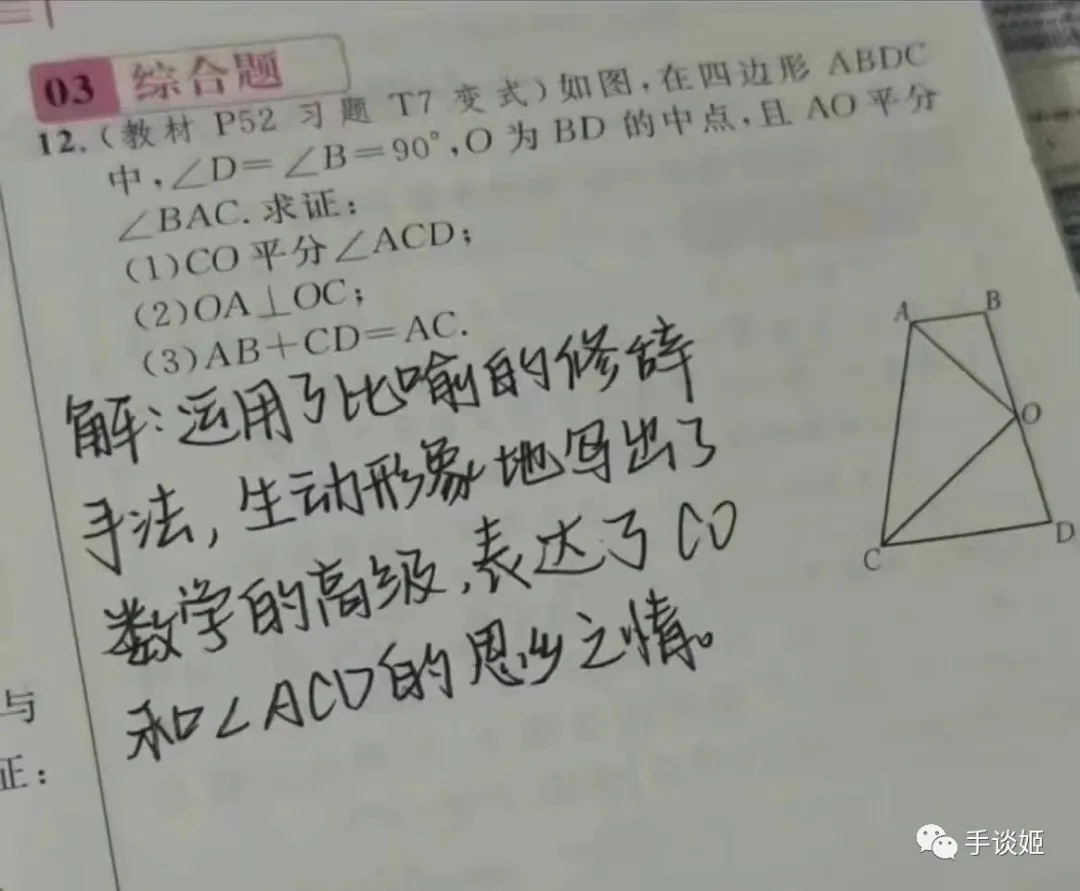 03 综合题
12.(教材 P52 习题 T7 变式)如图,在四边形 ABDC
中,∠D=∠B=90°,O 为 BD 的中点,且 AO 平分
∠BAC.求证:
(1)CO 平分∠ACD;
(2)OA⊥OC;
(3)AB+CD=AC.
解:运用了比喻的修辞
手法,生动形象地写出了
数学的高级,表达了 CO
和∠ACD的思乡之情。
A
B
O
C
D
与
证:
手谈姬